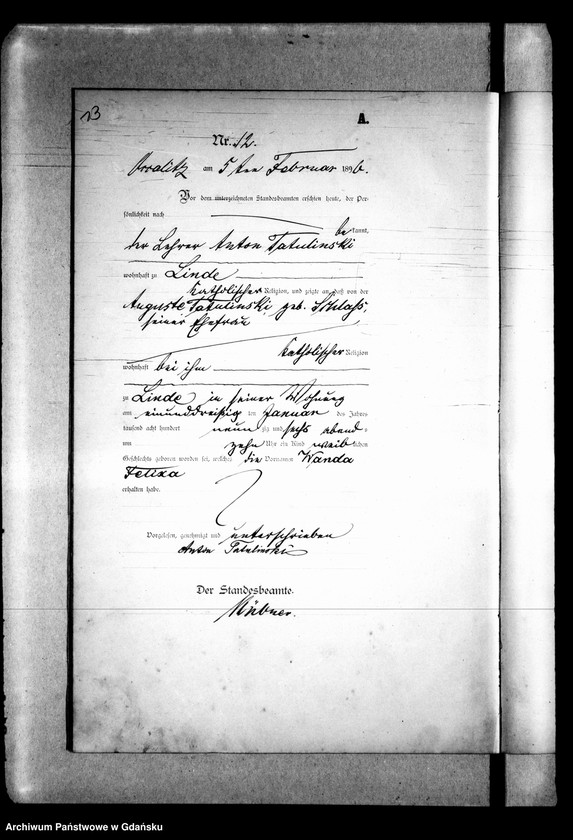 13
A.
Nr. 12.
am 5ten Februar 1896.
Vor dem unterzeichneten Standesbeamten erschien heute, der Per-
sönlichkeit nach
bekannt,
der Lehrer Anton Tatulinski
wohnhaft zu Linde
katholischer Religion, und zeigte an, daß von der
Auguste Tatulinski geb. Schlass,
seiner Ehefrau
katholischer Religion
wohnhaft bei ihm
zu Linde in seiner Wohnung
am einunddreißig ten Januar des Jahres
tausend acht hundert neunzig und sechs abends
um zehn Uhr ein Kind weiblichen
Geschlechts geboren worden sei, welches die Vornamen Wanda
Felixa
erhalten habe.
Vorgelesen, genehmigt und unterschrieben
Anton Tatulinski
Der Standesbeamte.
Archiwum Państwowe w Gdańsku